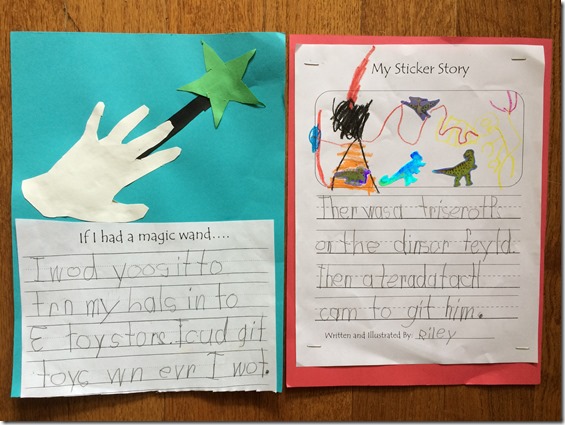 If I had a magic wand....
I wod yoos it to
trn my hals in to
E toy store. I cud git
toys wn evr I wot.
My Sticker Story
Ther was a triseroth
on the dinsor feyld.
then a teradatactl
cam to git him.
Written and Illustrated By: Riley